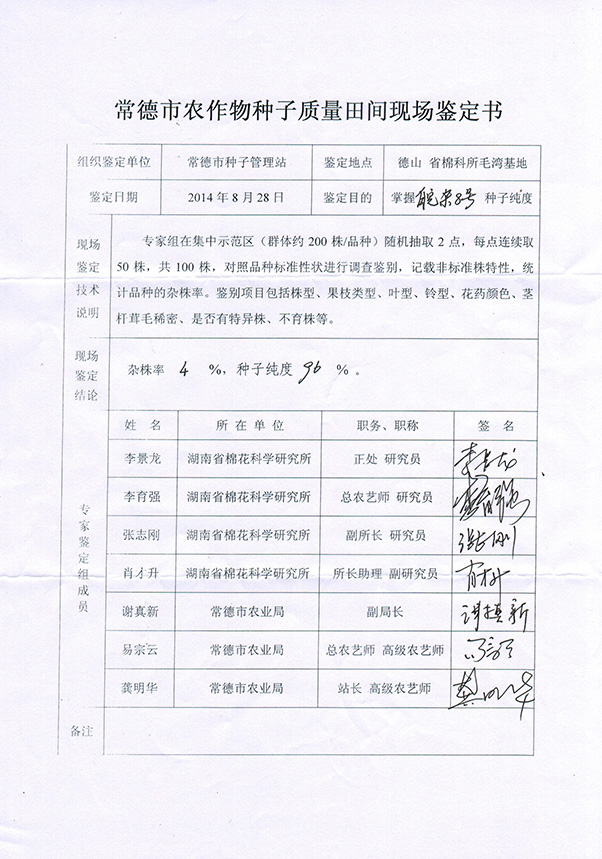 常德市农作物种子质量田间现场鉴定书
组织鉴定单位 常德市种子管理站 鉴定地点 德山 省棉科所毛湾基地
鉴定日期 2014年8月28日 鉴定目的 掌握皖杂8号 种子纯度
现场
鉴定
技术
说明
专家组在集中示范区（群体约200株/品种）随机抽取2点，每点连续取
50株，共100株，对照品种标准性状进行调查鉴别，记载非标准株特性，统
计品种的杂株率。鉴别项目包括株型、果枝类型、叶型、铃型、花药颜色、茎
杆茸毛稀密、是否有特异株、不育株等。
现场
鉴定
结论
杂株率 4 %，种子纯度 96 %。
专家鉴定组成员
姓名 所在单位 职务、职称 签名
李景龙 湖南省棉花科学研究所 正处 研究员 李景龙
李育强 湖南省棉花科学研究所 总农艺师 研究员 李育强
张志刚 湖南省棉花科学研究所 副所长 研究员 张志刚
肖才升 湖南省棉花科学研究所 所长助理 副研究员 肖才升
谢真新 常德市农业局 副局长 谢真新
易宗云 常德市农业局 总农艺师 高级农艺师
龚明华 常德市农业局 站长 高级农艺师 龚明华
备注